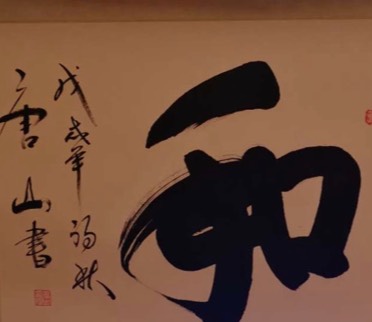 和
戊戌年初秋
唐山書